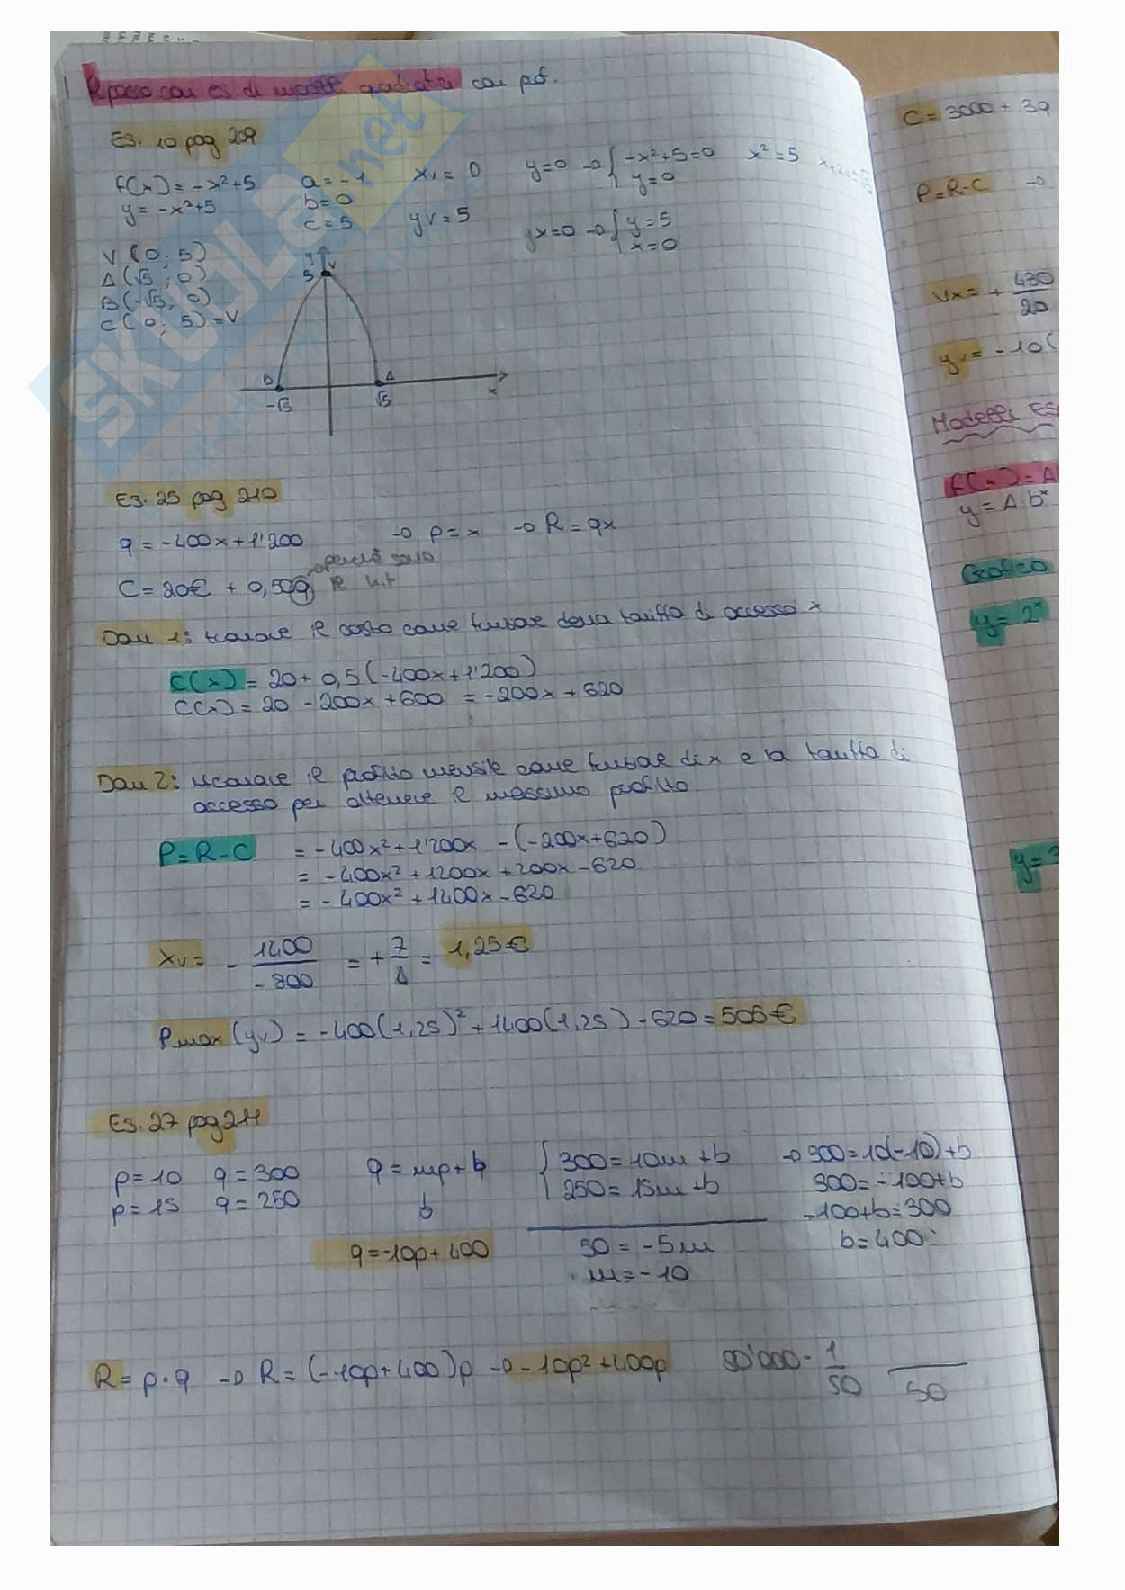 Ripasso con es di modelli quadratici con prof.
Es. 10 pag 209
f(x) = -x²+5 a = -1 xv = 0 y=0 → { -x²+5=0 x²=5
y = -x²+5 b=0 y=0
c=5 yv = 5 x=0 → { y=5
x=0
V (0; 5)
A (√5; 0)
B (-√5; 0)
C (0; 5) = V
y
5 V
B A
-√5 √5 x
Es. 25 pag 210
q = -400x+1'200 → p = x → R = qx
C = 20€ + 0,50q
Dom 1: trovare il costo come funzione della tariffa di accesso x
C(x) = 20 + 0,5(-400x+1'200)
C(x) = 20 - 200x + 600 = -200x + 620
Dom 2: ricavare il profitto mensile come funzione di x e la tariffa di
accesso per ottenere il massimo profitto
P=R-C = -400x²+1'200x - (-200x+620)
= -400x²+1200x+200x-620
= -400x²+1400x-620
xv= - 1400 / -800 = + 7 / 4 = 1,25€
Pmax (yv) = -400(1,25)² + 1400(1,25) - 620 = 505€
Es. 27 pag 211
p=10 q=300 q = mp+b { 300=10m+b → 300=10(-10)+b
p=15 q=250 250=15m+b 300=-100+b
-100+b=300
q=-10p+400 50 = -5m b=400
m=-10
R = p·q → R = (-10p+400)p → -10p²+400p 90'000 · 1 / 50 50
C = 3000 + 30
P=R-C →
Vx = + 430 / 20
yv = -10(
Modelli Es
f(x) = A
y = A·b^x
Grafico
y = 2^x
y=3
SKUOLA.net